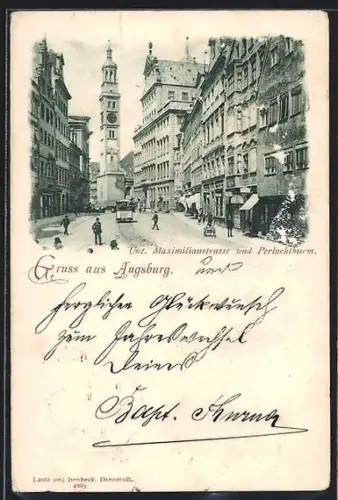 Unt. Maximilianstrasse und Perlachthurm.
Gruss aus Augsburg. und
herzlichen Glückwunsch
zum Jahreswechsel
Deines
Bapt.
Lautz und Isenbeck, Darmstadt.